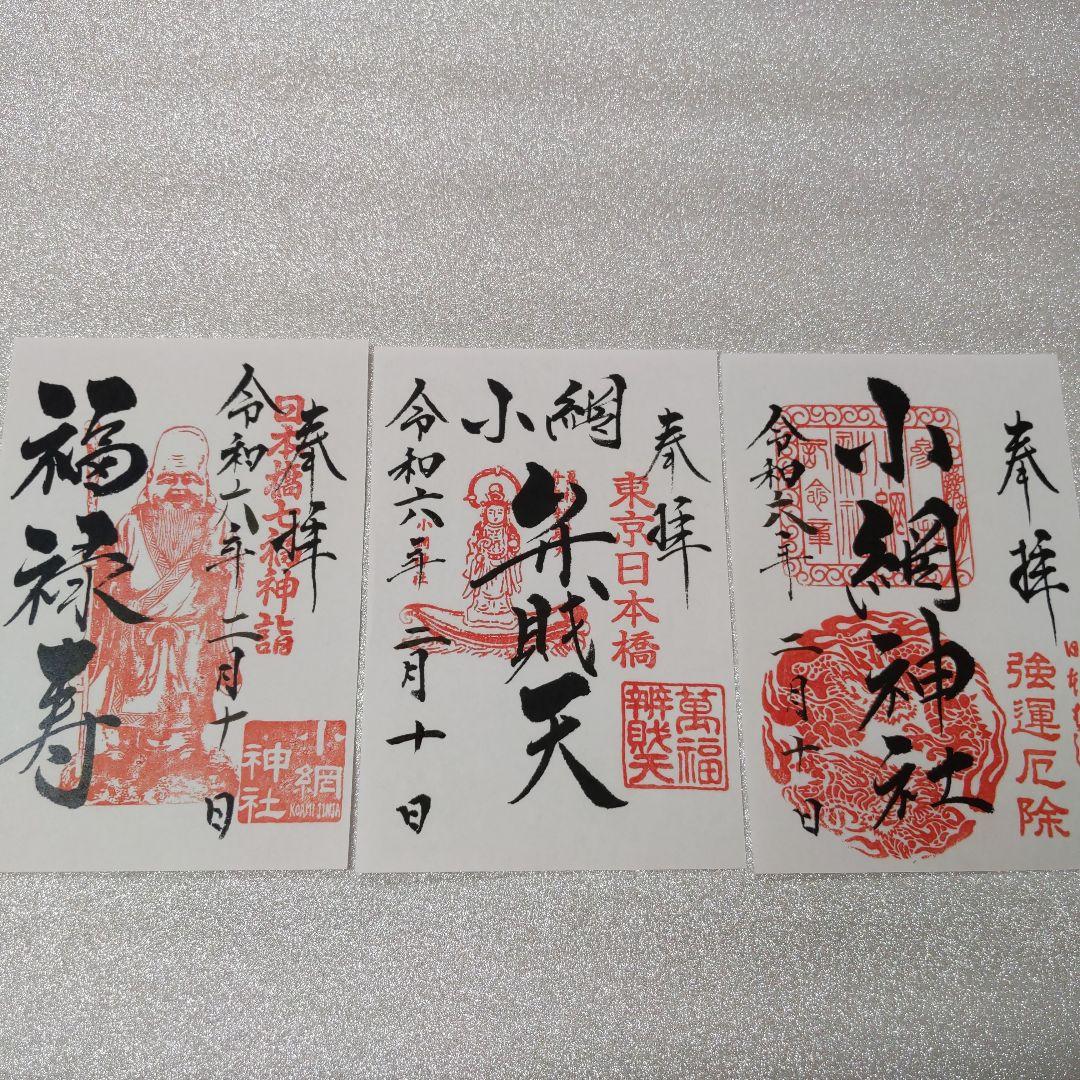 奉拝
日本橋七福神詣
令和六年二月十日
福禄寿
小網神社
KOAMI JINJA
奉拝
東京日本橋
小網
弁財天
令和六年二月十日
萬福
辨財天
奉拝
強運厄除
小網神社
令和六年二月十日